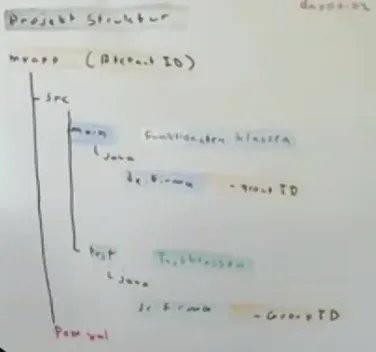 Projekt Struktur
myapp (Artefact ID)
src
main Funktionalen Klassen
java
de.firma - group ID
test Testklassen
java
de.firma - Group ID
Pom.xml